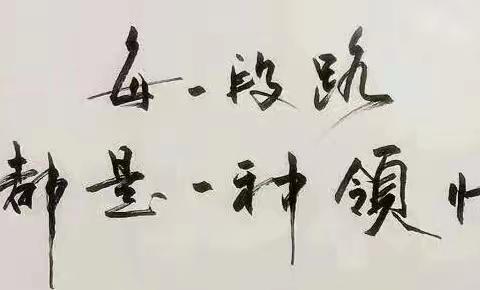 每一段路
都是一种領